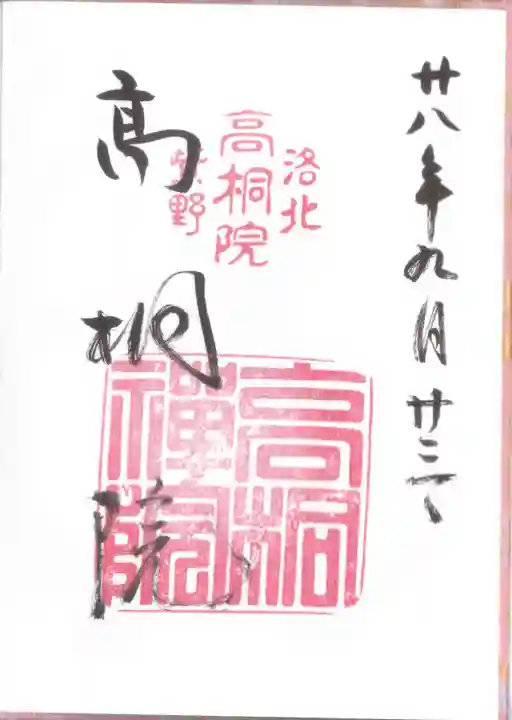 廿八年九月廿二日
洛北
高桐院
紫野
高桐院
高桐
禅院